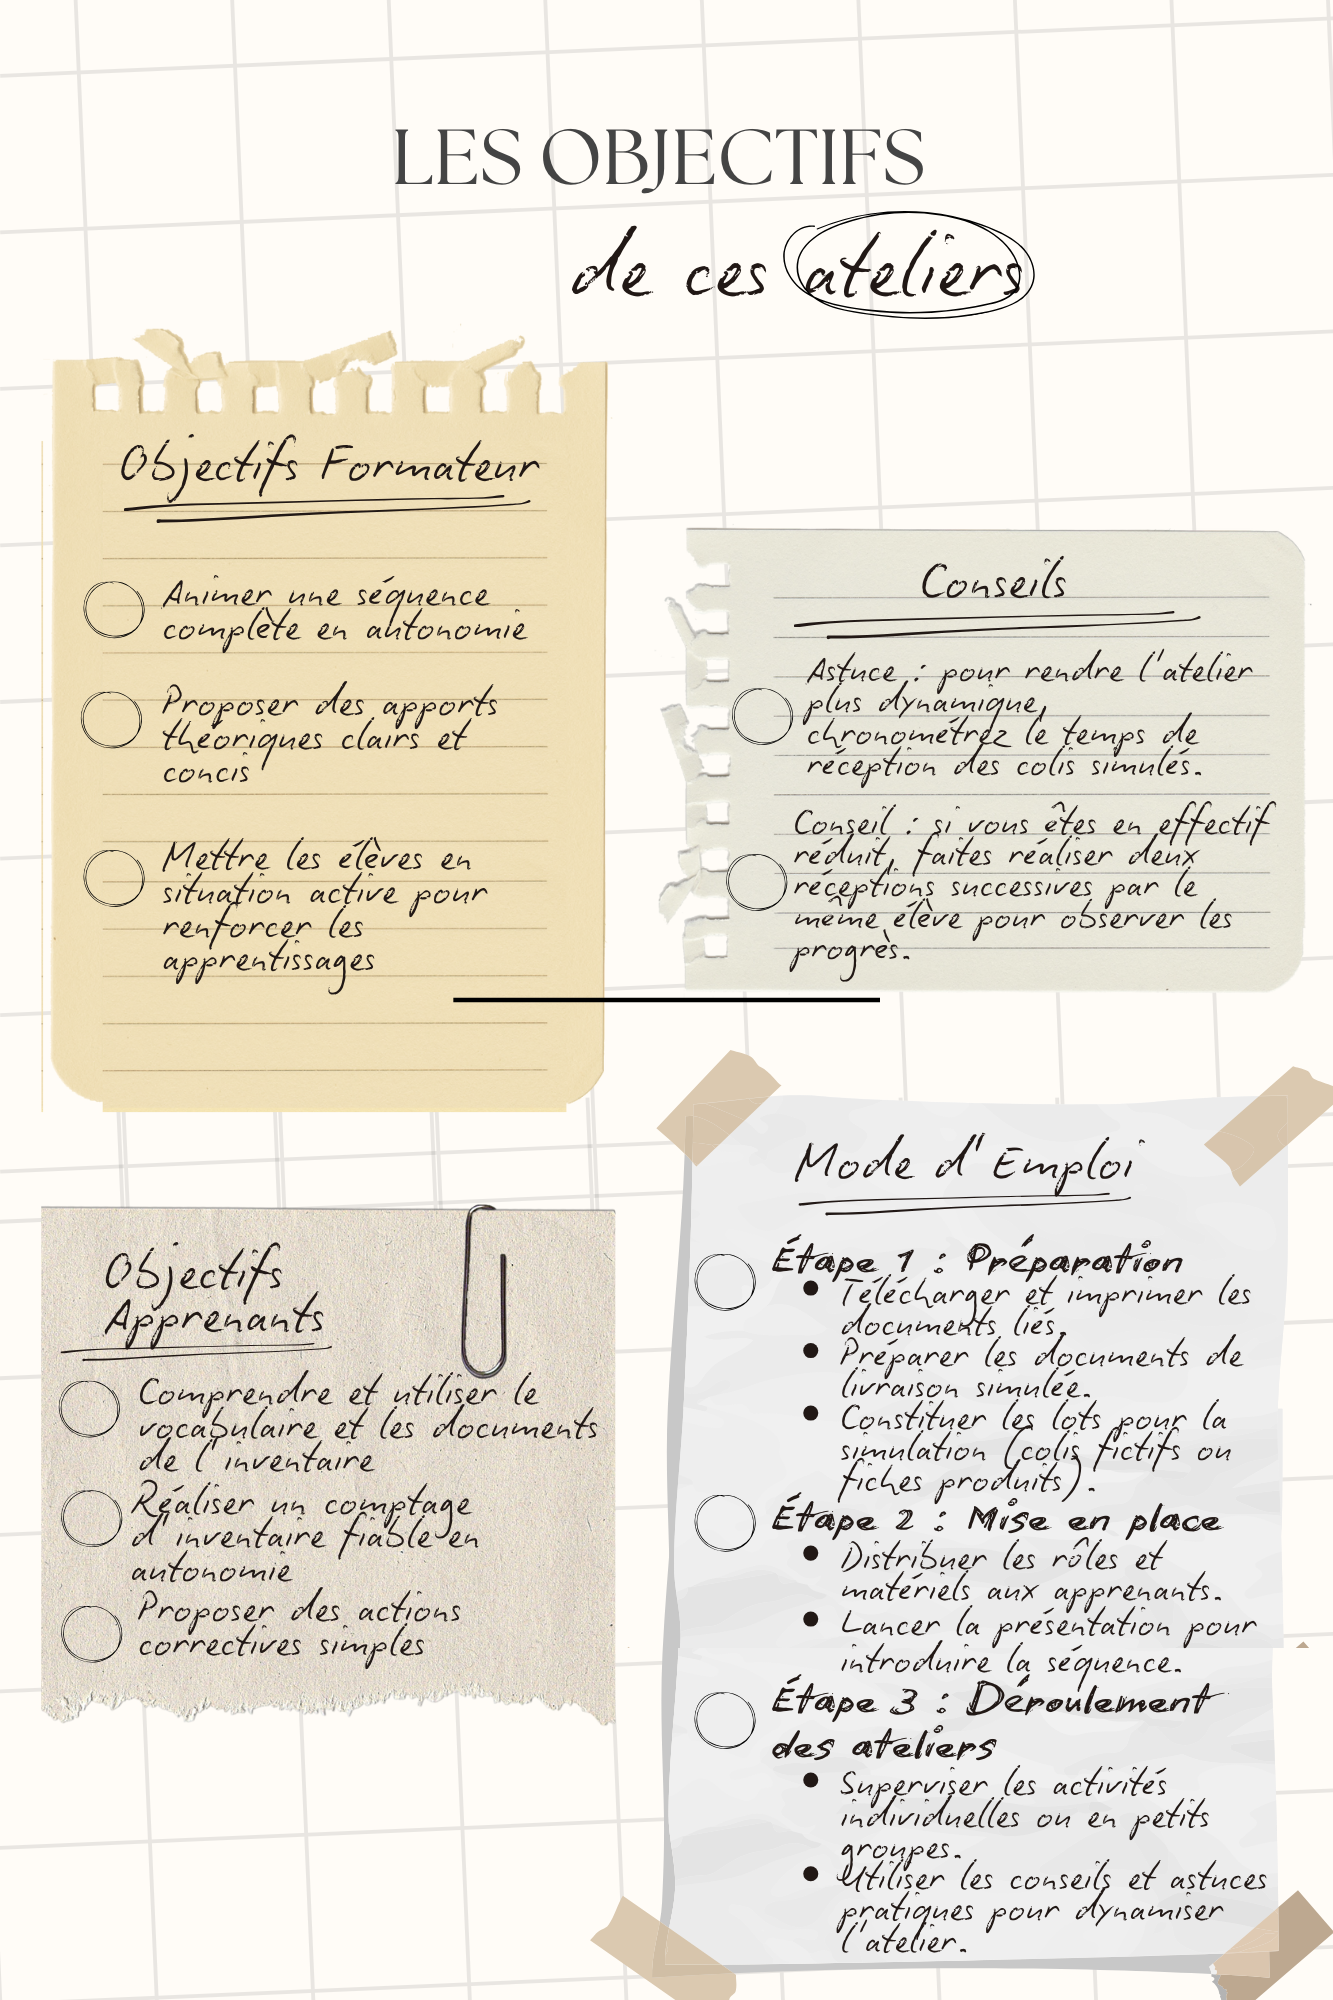 LES OBJECTIFS
de ces ateliers
Objectifs Formateur
Animer une séquence
complète en autonomie
Proposer des apports
théoriques clairs et
concis
Mettre les élèves en
situation active pour
renforcer les
apprentissages
Conseils
Astuce : pour rendre l'atelier
plus dynamique,
chronométrez le temps de
réception des colis simulés.
Conseil : si vous êtes en effectif
réduit, faites réaliser deux
réceptions successives par le
même élève pour observer les
progrès.
Objectifs
Apprenants
Comprendre et utiliser le
vocabulaire et les documents
de l'inventaire
Réaliser un comptage
d'inventaire fiable en
autonomie
Proposer des actions
correctives simples
Mode d'Emploi
Étape 1 : Préparation
• Télécharger et imprimer les
documents liés.
• Préparer les documents de
livraison simulée.
• Constituer les lots pour la
simulation (colis fictifs ou
fiches produits).
Étape 2 : Mise en place
• Distribuer les rôles et
matériels aux apprenants.
• Lancer la présentation pour
introduire la séquence.
Étape 3 : Déroulement
des ateliers
• Superviser les activités
individuelles ou en petits
groupes.
• Utiliser les conseils et astuces
pratiques pour dynamiser
l'atelier.